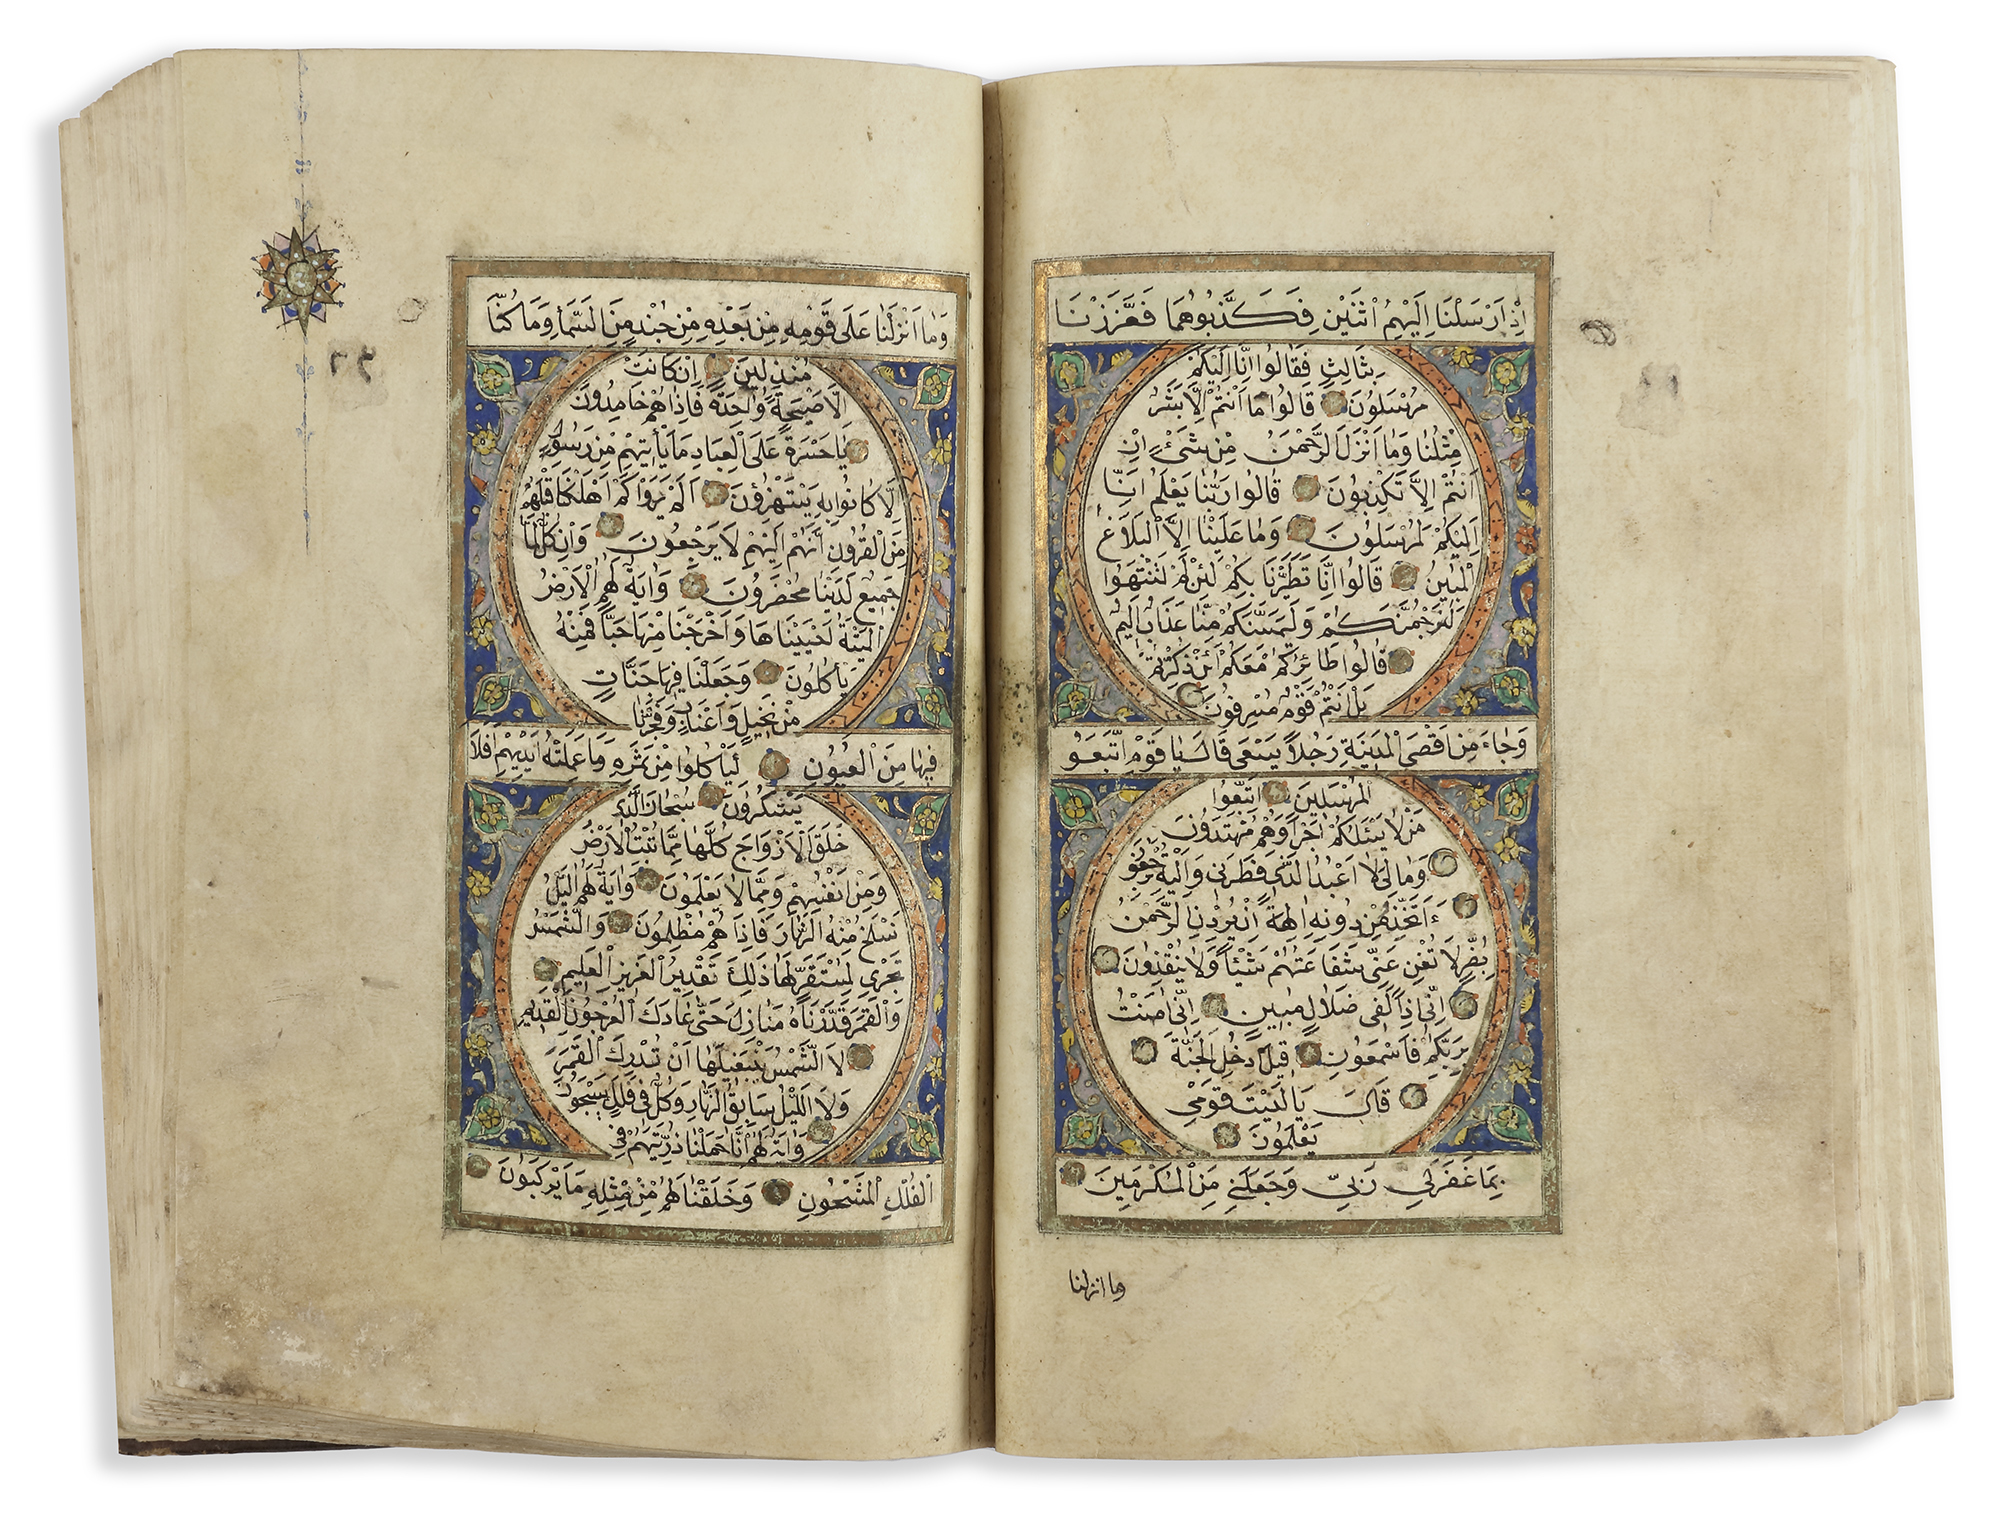 اِذْ اَرْسَلْنَا اِلَيْهِمُ اثْنَيْنِ فَكَذَّبُوهُمَا فَعَزَّزْنَا
بِثَالِثٍ فَقَالُوا اِنَّا اِلَيْكُمْ
مُرْسَلُونَ قَالُوا مَا اَنْتُمْ اِلَّا بَشَرٌ
مِثْلُنَا وَمَا اَنْزَلَ الرَّحْمٰنُ مِنْ شَيْءٍ اِنْ
اَنْتُمْ اِلَّا تَكْذِبُونَ قَالُوا رَبُّنَا يَعْلَمُ اِنَّا
اِلَيْكُمْ لَمُرْسَلُونَ وَمَا عَلَيْنَا اِلَّا الْبَلَاغُ
الْمُبِينُ قَالُوا اِنَّا تَطَيَّرْنَا بِكُمْ لَئِنْ لَمْ تَنْتَهُوا
لَنَرْجُمَنَّكُمْ وَلَيَمَسَّنَّكُمْ مِنَّا عَذَابٌ اَلِيمٌ
قَالُوا طَائِرُكُمْ مَعَكُمْ اَئِنْ ذُكِّرْتُمْ
بَلْ اَنْتُمْ قَوْمٌ مُسْرِفُونَ
وَجَاءَ مِنْ اَقْصَى الْمَدِينَةِ رَجُلٌ يَسْعَى قَالَ يَا قَوْمِ اتَّبِعُو
الْمُرْسَلِينَ اتَّبِعُوا
مَنْ لَا يَسْئَلُكُمْ اَجْرًا وَهُمْ مُهْتَدُونَ
وَمَا لِيَ لَا اَعْبُدُ الَّذِى فَطَرَنِى وَاِلَيْهِ تُرْجَعُونَ
ءَاَتَّخِذُ مِنْ دُونِهِ اٰلِهَةً اِنْ يُرِدْنِ الرَّحْمٰنُ
بِضُرٍّ لَا تُغْنِ عَنِّى شَفَاعَتُهُمْ شَيْئًا وَلَا يُنْقِذُونَ
اِنِّى اِذًا لَفِى ضَلَالٍ مُبِينٍ اِنِّى اٰمَنْتُ
بِرَبِّكُمْ فَاسْمَعُونِ قِيلَ ادْخُلِ الْجَنَّةَ
قَالَ يَا لَيْتَ قَوْمِى
يَعْلَمُونَ
بِمَا غَفَرَ لِى رَبِّى وَجَعَلَنِى مِنَ الْمُكْرَمِينَ
وما انزلنا
وَمَا اَنْزَلْنَا عَلَى قَوْمِهِ مِنْ بَعْدِهِ مِنْ جُنْدٍ مِنَ السَّمَاءِ وَمَا كُنَّا
مُنْزِلِينَ اِنْ كَانَتْ
اِلَّا صَيْحَةً وَاحِدَةً فَاِذَا هُمْ خَامِدُونَ
يَا حَسْرَةً عَلَى الْعِبَادِ مَا يَأْتِيهِمْ مِنْ رَسُولٍ
اِلَّا كَانُوا بِهِ يَسْتَهْزِؤُنَ اَلَمْ يَرَوْا كَمْ اَهْلَكْنَا قَبْلَهُمْ
مِنَ الْقُرُونِ اَنَّهُمْ اِلَيْهِمْ لَا يَرْجِعُونَ وَاِنْ كُلٌّ لَمَّا
جَمِيعٌ لَدَيْنَا مُحْضَرُونَ وَاٰيَةٌ لَهُمُ الْاَرْضُ
الْمَيْتَةُ اَحْيَيْنَاهَا وَاَخْرَجْنَا مِنْهَا حَبًّا فَمِنْهُ
يَأْكُلُونَ وَجَعَلْنَا فِيهَا جَنَّاتٍ
مِنْ نَخِيلٍ وَاَعْنَابٍ وَفَجَّرْنَا
فِيهَا مِنَ الْعُيُونِ لِيَأْكُلُوا مِنْ ثَمَرِهِ وَمَا عَمِلَتْهُ اَيْدِيهِمْ اَفَلَا
يَشْكُرُونَ سُبْحَانَ الَّذِى
خَلَقَ الْاَزْوَاجَ كُلَّهَا مِمَّا تُنْبِتُ الْاَرْضُ
وَمِنْ اَنْفُسِهِمْ وَمِمَّا لَا يَعْلَمُونَ وَاٰيَةٌ لَهُمُ الَّيْلُ
نَسْلَخُ مِنْهُ النَّهَارَ فَاِذَا هُمْ مُظْلِمُونَ وَالشَّمْسُ
تَجْرِى لِمُسْتَقَرٍّ لَهَا ذٰلِكَ تَقْدِيرُ الْعَزِيزِ الْعَلِيمِ
وَالْقَمَرَ قَدَّرْنَاهُ مَنَازِلَ حَتَّى عَادَ كَالْعُرْجُونِ الْقَدِيمِ
لَا الشَّمْسُ يَنْبَغِى لَهَا اَنْ تُدْرِكَ الْقَمَرَ
وَلَا اللَّيْلُ سَابِقُ النَّهَارِ وَكُلٌّ فِى فَلَكٍ يَسْبَحُونَ
وَاٰيَةٌ لَهُمْ اَنَّا حَمَلْنَا ذُرِّيَّتَهُمْ فِى
الْفُلْكِ الْمَشْحُونِ وَخَلَقْنَا لَهُمْ مِنْ مِثْلِهِ مَا يَرْكَبُونَ